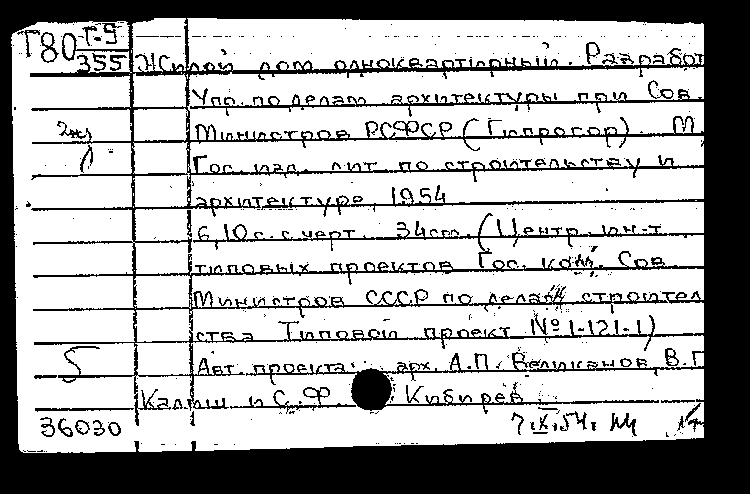 Г80 Г-9
355
Жилой дом одноквартирный. Разработ
Упр. по делам архитектуры при Сов.
2 экз
Министров РСФСР (Гипрогор). М.,
Гос. изд. лит по строительству и
архитектуре, 1954
6, 10 с. с черт. 34 см. (Центр. ин-т
типовых проектов Гос. ком. Сов
Министров СССР по делам строител
ства Типовой проект № 1-121-1)
5
Авт. проекта: арх. А.П. Великанов, В.Г
Калиш и С.Ф. Кибирев
36030
7.X.54.